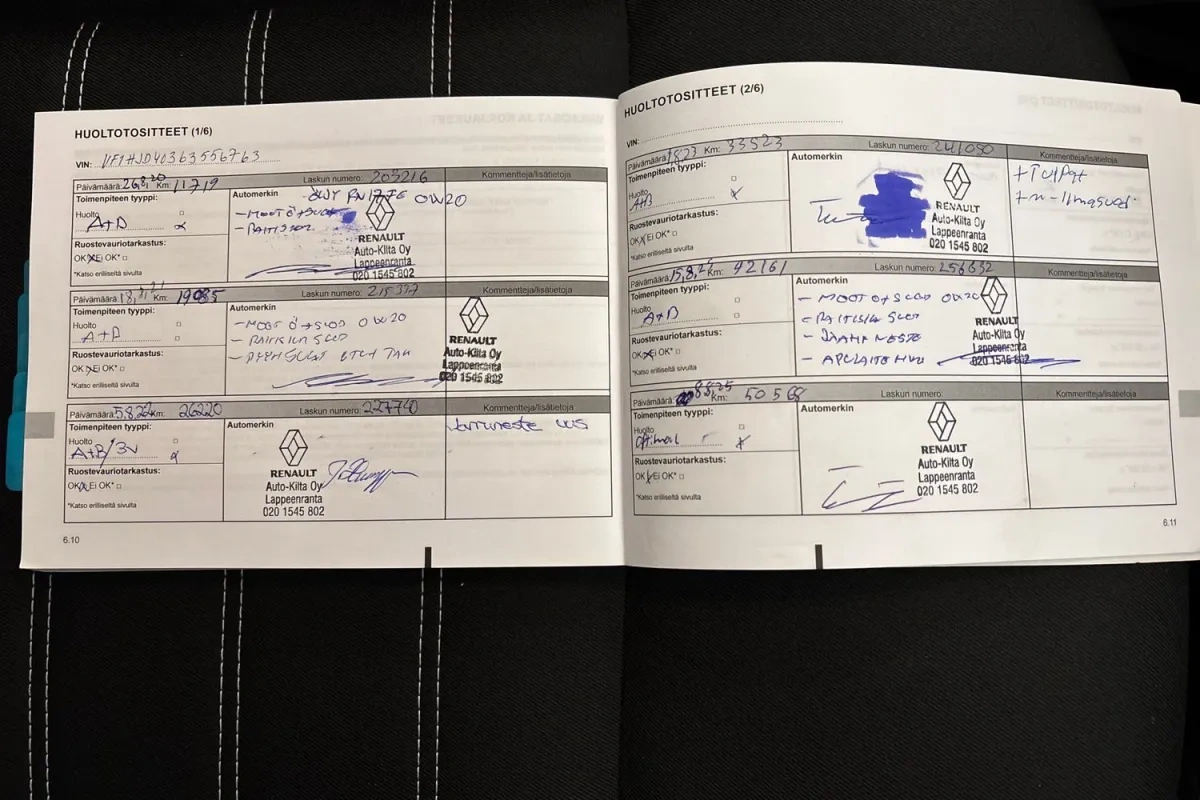 HUOLTOTOSITTEET (1/6)
VIN: VF1HJD40363556763
Päivämäärä: 26.8.20 Km: 11719 Laskun numero: 203216 Kommentteja/lisätietoja
Toimenpiteen tyyppi:
Huolto
A+D
Ruostevauriotarkastus:
OK Ei OK*
*Katso erilliseltä sivulta
Automerkin
ÖLJY RN17FE 0W20
RENAULT
Auto-Kilta Oy
Lappeenranta
020 1545 802
Päivämäärä: 18.8.21 Km: 19085 Laskun numero: 215377 Kommentteja/lisätietoja
Toimenpiteen tyyppi:
Huolto
A+D
Ruostevauriotarkastus:
OK Ei OK*
*Katso erilliseltä sivulta
Automerkin
- MOOT Ö+SUOD 0W20
- RAITISILM SUOD
RENAULT
Auto-Kilta Oy
Lappeenranta
020 1545 802
Päivämäärä: 5.8.22 Km: 26220 Laskun numero: 227740 Kommentteja/lisätietoja
Toimenpiteen tyyppi:
Huolto
A+B/3v
Ruostevauriotarkastus:
OK Ei OK*
*Katso erilliseltä sivulta
Automerkin
RENAULT
Auto-Kilta Oy
Lappeenranta
020 1545 802
Jarruneste uus
6.10
HUOLTOTOSITTEET (2/6)
VIN:
Päivämäärä: Km: 33523 Laskun numero: 241080 Kommentteja/lisätietoja
Toimenpiteen tyyppi:
Huolto
A+B
Ruostevauriotarkastus:
OK Ei OK*
*Katso erilliseltä sivulta
Automerkin
RENAULT
Auto-Kilta Oy
Lappeenranta
020 1545 802
+ Tulpat
+ m-ilmasuod.
Päivämäärä: 15.8.24 Km: 42161 Laskun numero: 256632 Kommentteja/lisätietoja
Toimenpiteen tyyppi:
Huolto
A+D
Ruostevauriotarkastus:
OK Ei OK*
*Katso erilliseltä sivulta
Automerkin
- MOOT Ö+SUOD 0W20
- RAITISILM SUOD
- JARRUNESTE
- APULAITEHIHN
RENAULT
Auto-Kilta Oy
Lappeenranta
020 1545 802
Päivämäärä: 8.8.25 Km: 50568 Laskun numero: Kommentteja/lisätietoja
Toimenpiteen tyyppi:
Huolto
Optimal
Ruostevauriotarkastus:
OK Ei OK*
*Katso erilliseltä sivulta
Automerkin
RENAULT
Auto-Kilta Oy
Lappeenranta
020 1545 802
6.11